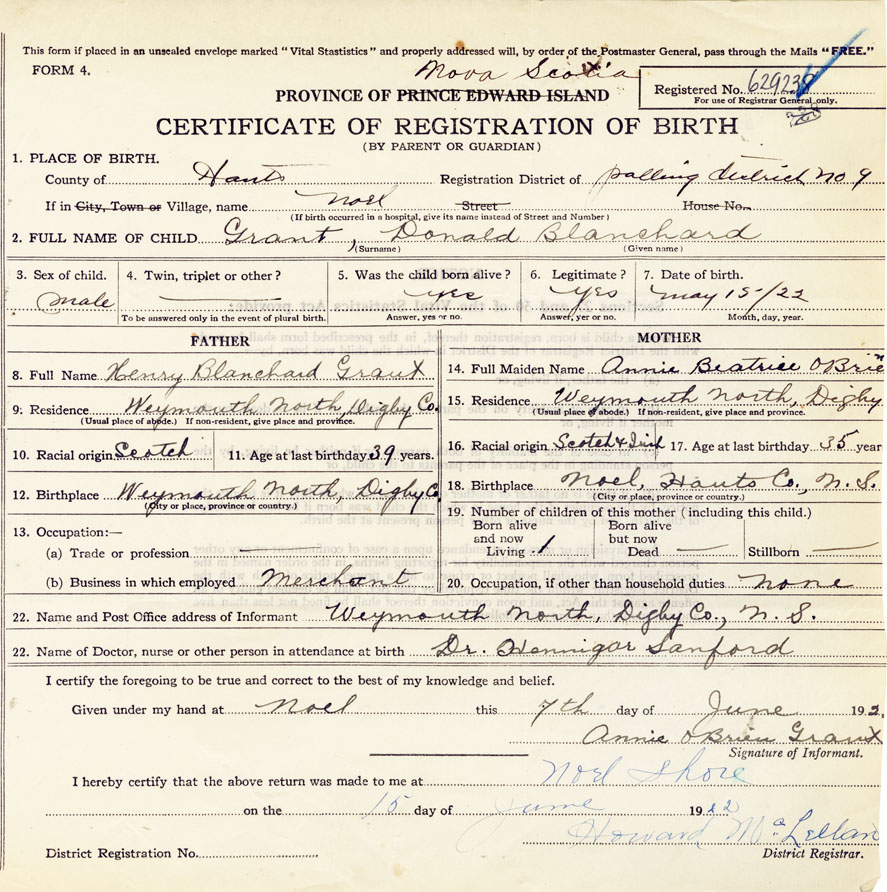 This form if placed in an unsealed envelope marked "Vital Stastistics" and properly addressed will, by order of the Postmaster General, pass through the Mails "FREE."
FORM 4.
Nova Scotia
Registered No. 629238
For use of Registrar General only.
PROVINCE OF PRINCE EDWARD ISLAND
CERTIFICATE OF REGISTRATION OF BIRTH
(BY PARENT OR GUARDIAN)
1. PLACE OF BIRTH.
County of Hants Registration District of polling district no 9
If in City, Town or Village, name Noel Street House No.
(If birth occurred in a hospital, give its name instead of Street and Number)
2. FULL NAME OF CHILD Grant, Donald Blanchard
(Surname) (Given name)
3. Sex of child. 4. Twin, triplet or other? 5. Was the child born alive? 6. Legitimate? 7. Date of birth.
male yes yes may 15/22
To be answered only in the event of plural birth. Answer, yes or no. Answer, yes or no. Month, day, year.
FATHER
8. Full Name Henry Blanchard Grant
9. Residence Weymouth North, Digby Co.
(Usual place of abode.) If non-resident, give place and province.
10. Racial origin Scotch 11. Age at last birthday 39 years.
12. Birthplace Weymouth North, Digby Co
(City or place, province or country.)
13. Occupation:—
(a) Trade or profession —
(b) Business in which employed Merchant
MOTHER
14. Full Maiden Name Annie Beatrice O'Brien
15. Residence Weymouth North, Digby
(Usual place of abode.) If non-resident, give place and province.
16. Racial origin Scotch & Irish 17. Age at last birthday 35 year
18. Birthplace Noel, Hants Co., N. S.
(City or place, province or country.)
19. Number of children of this mother (including this child.)
Born alive Born alive
and now but now
Living 1 Dead — Stillborn —
20. Occupation, if other than household duties none
22. Name and Post Office address of Informant Weymouth North, Digby Co., N. S.
22. Name of Doctor, nurse or other person in attendance at birth Dr. Hennigar Sanford
I certify the foregoing to be true and correct to the best of my knowledge and belief.
Given under my hand at Noel this 7th day of June 192
Annie O'Brien Grant
Signature of Informant.
I hereby certify that the above return was made to me at Noel Shore
on the 15 day of June 1922
Howard McLellan
District Registration No. District Registrar.